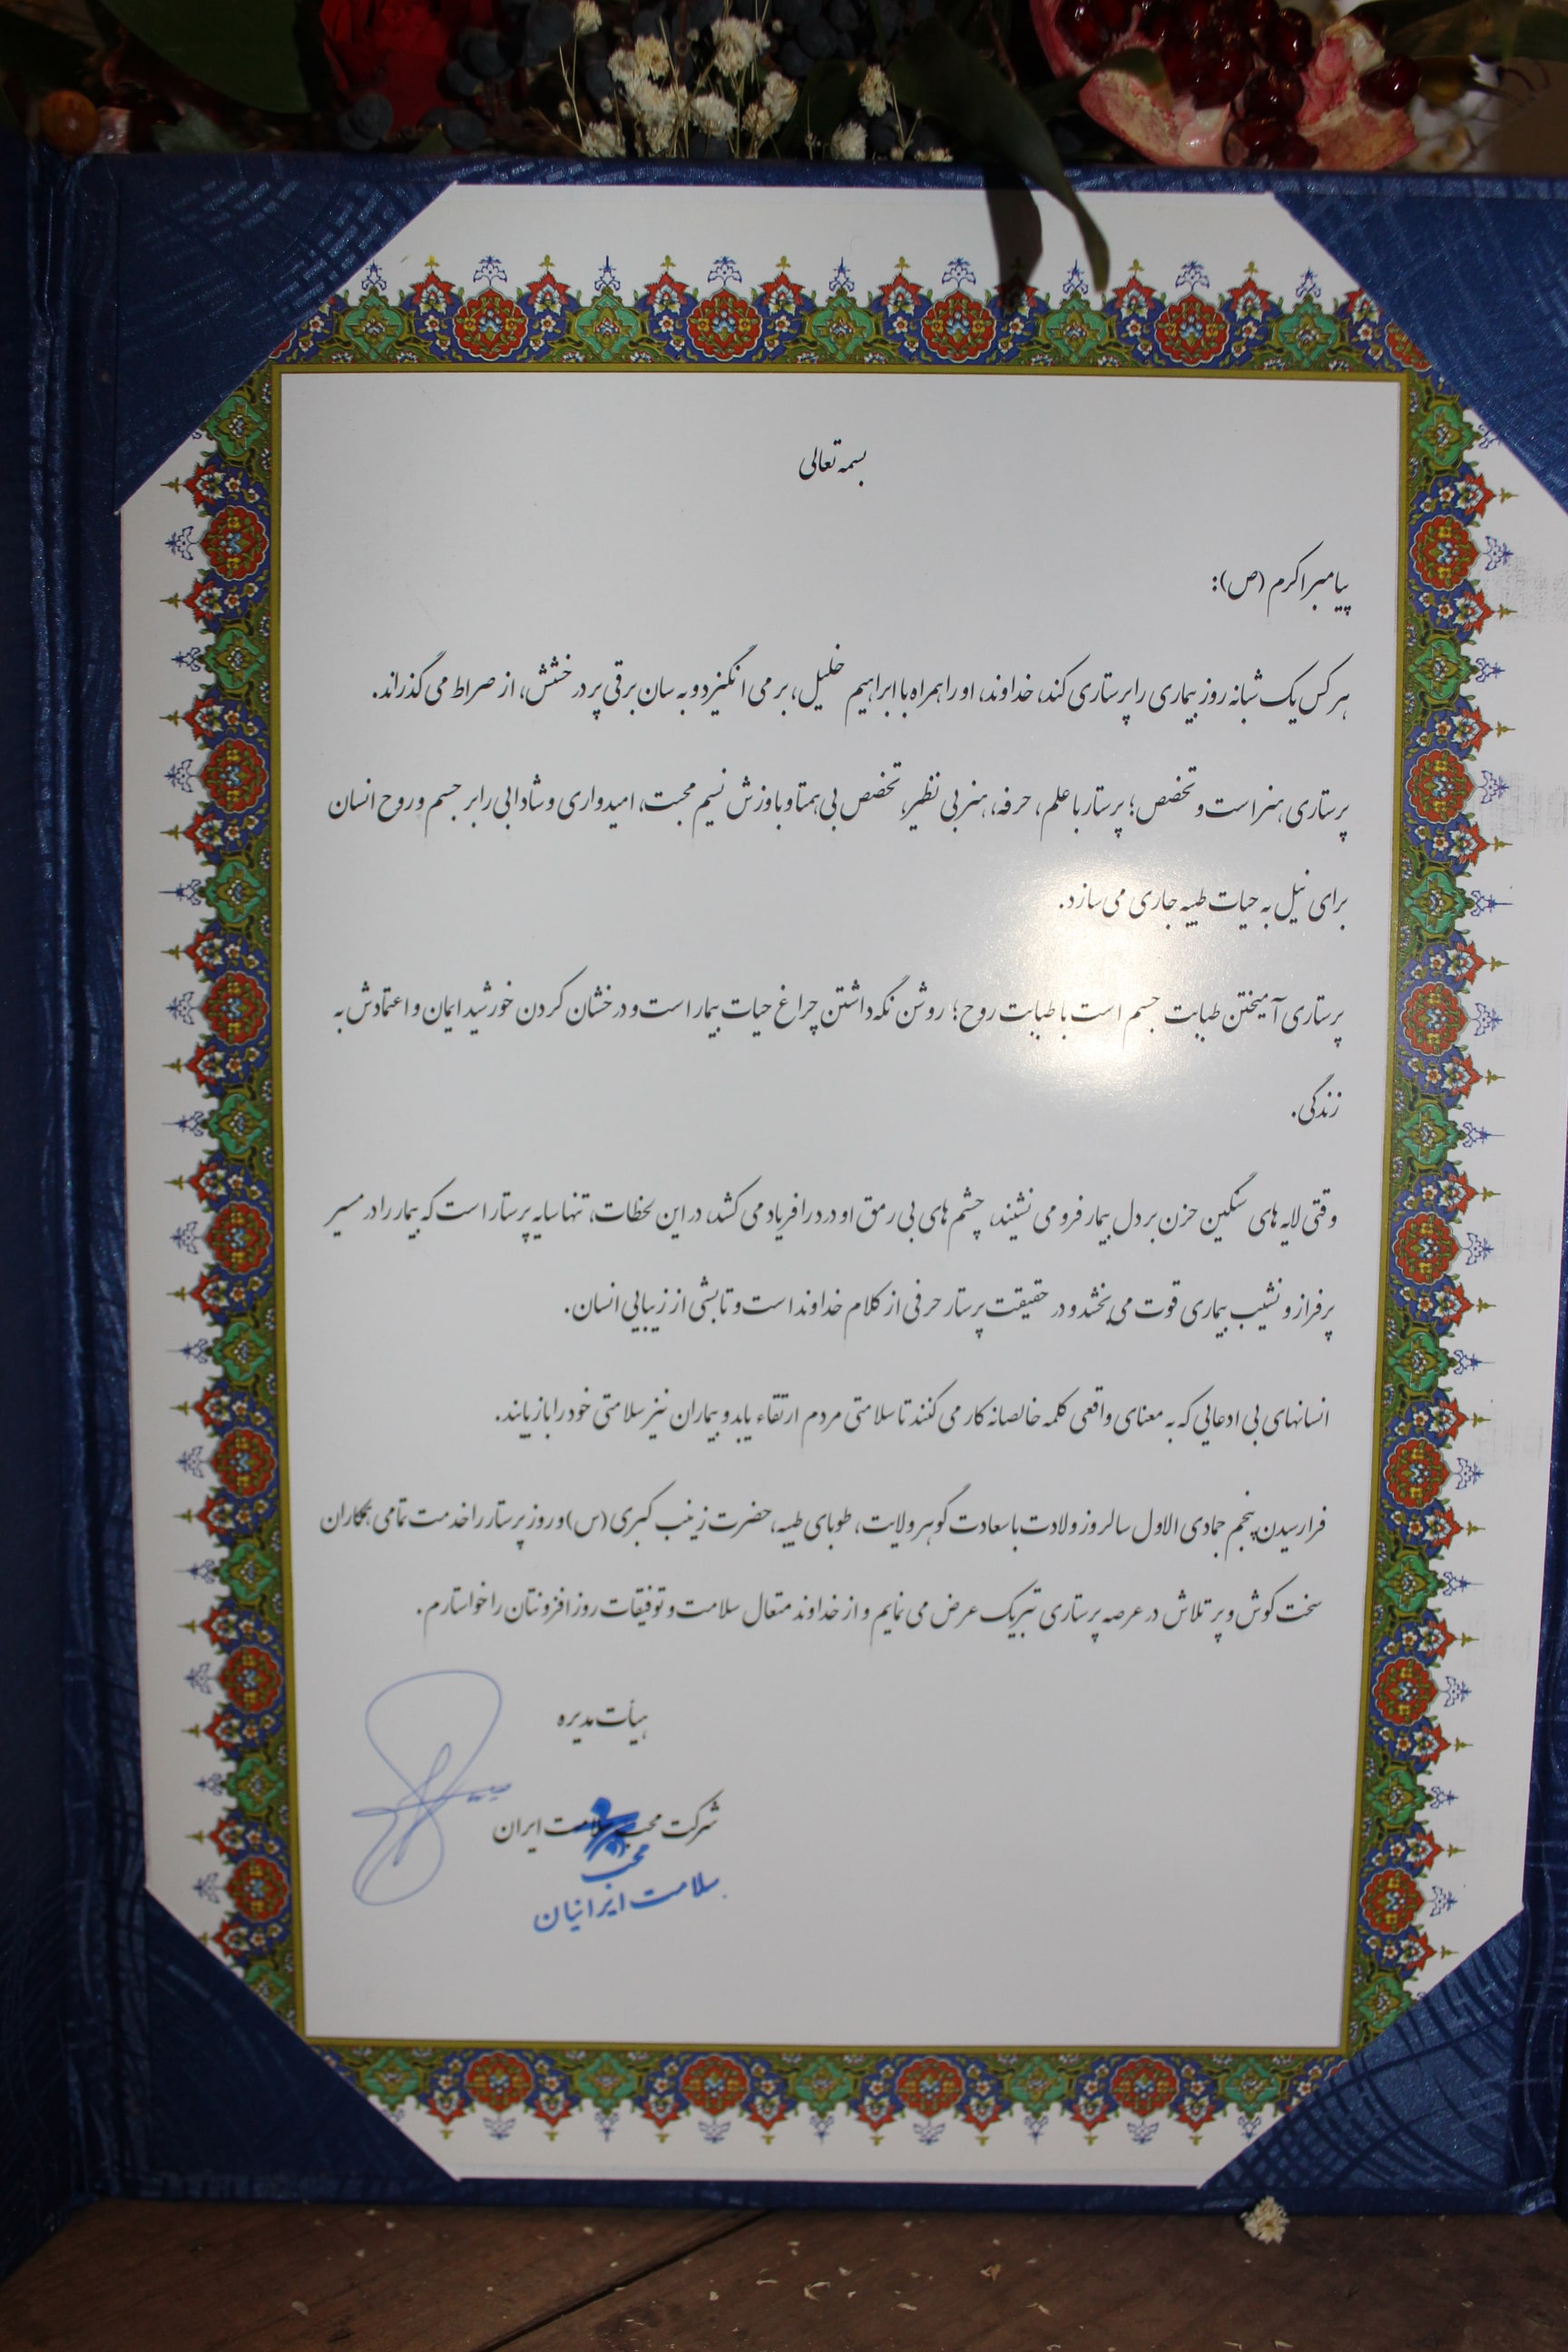 بسمه تعالی
پیامبر اکرم (ص):
هر کس یک شبانه روز بیماری را پرستاری کند، خداوند، او را همراه با ابراهیم خلیل، بر می انگیزد و به سان برقی پر درخشش، از صراط می گذراند.
پرستاری هنر است و تخصص؛ پرستار با علم، حرفه، هنر بی نظیر، تخصص بی همتا و با وزش نسیم محبت، امیدواری و شادابی را بر جسم و روح انسان
برای نیل به حیات طیبه جاری می سازد.
پرستاری آمیختن طبابت جسم است با طبابت روح؛ روشن نگه داشتن چراغ حیات بیمار است و درخشان کردن خورشید ایمان و اعتمادش به
زندگی.
وقتی لایه های سنگین حزن بر دل بیمار فرو می نشیند، چشم های بی رمق او درد را فریاد می کشد، در این لحظات، تنها سایه پرستار است که بیمار را در مسیر
پر فراز و نشیب بیماری قوت می بخشد و در حقیقت پرستار حرفی از کلام خداوند است و تابشی از زیبایی انسان.
انسانهای بی ادعایی که به معنای واقعی کلمه خالصانه کار می کنند تا سلامتی مردم ارتقاء یابد و بیماران نیز سلامتی خود را بازیابند.
فرارسیدن پنجم جمادی الاول سالروز ولادت با سعادت گوهر ولایت، طوبای طیبه، حضرت زینب کبری (س) و روز پرستار را خدمت تمامی همکاران
سخت کوش و پر تلاش در عرصه پرستاری تبریک عرض می نمایم و از خداوند متعال سلامت و توفیقات روز افزونتان را خواستارم.
هیأت مدیره
شرکت محب سلامت ایران
محب
سلامت ایرانیان